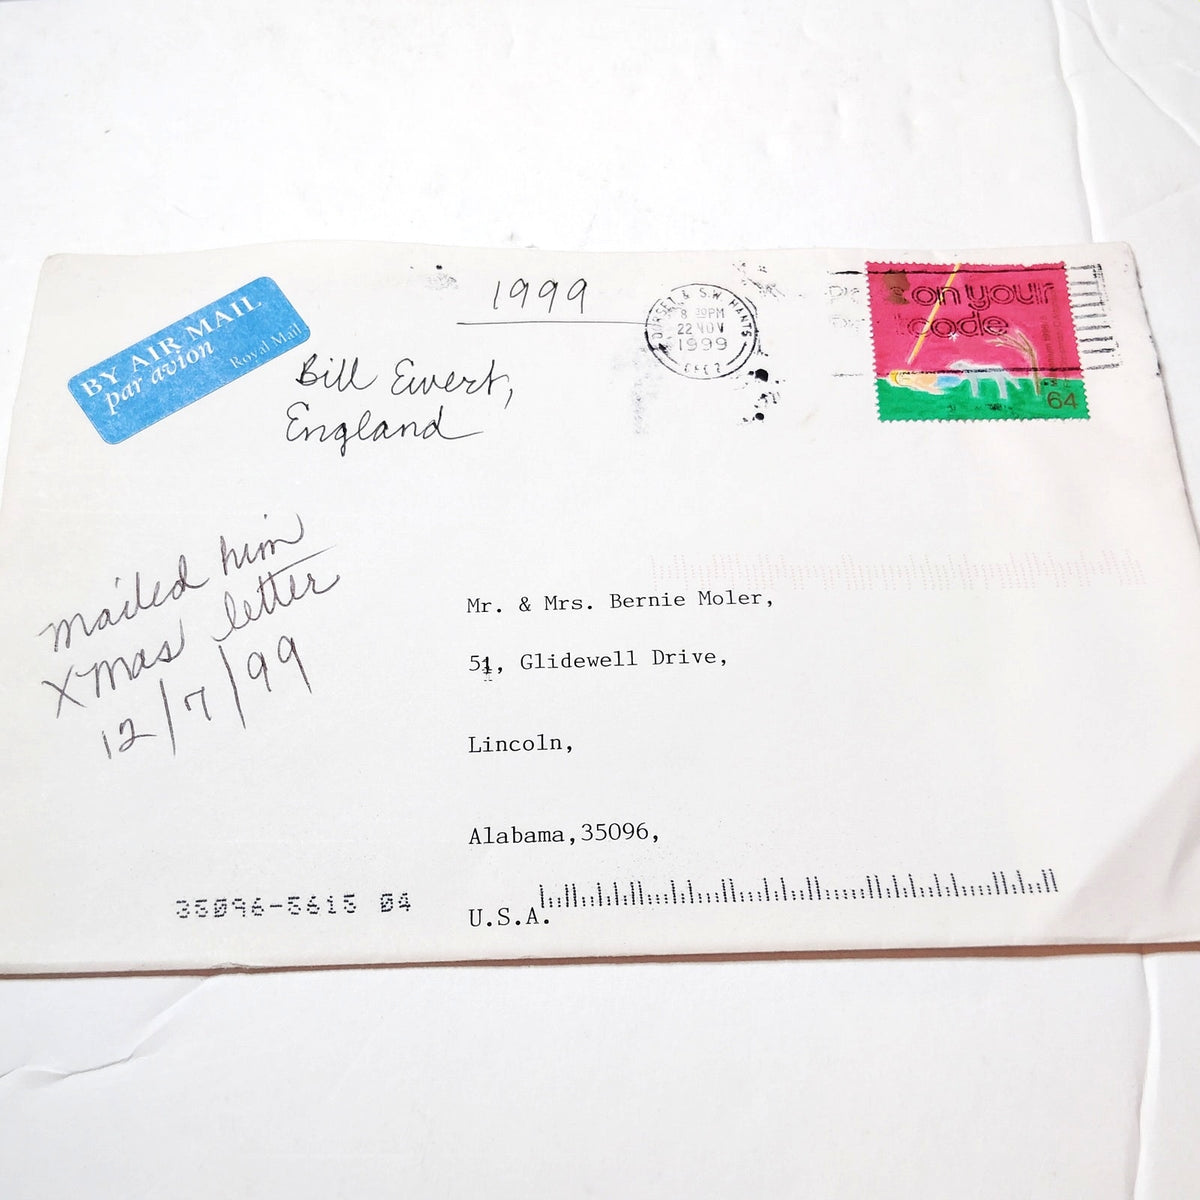 BY AIR MAIL
par avion
Royal Mail
1999
Bill Ewert,
England
DORSET & S.W. HANTS
PM
22 NOV
1999
on your
code
64
mailed him
Xmas letter
12/7/99
Mr. & Mrs. Bernie Moler,
51, Glidewell Drive,
Lincoln,
Alabama,35096,
U.S.A.
35096-5615 04